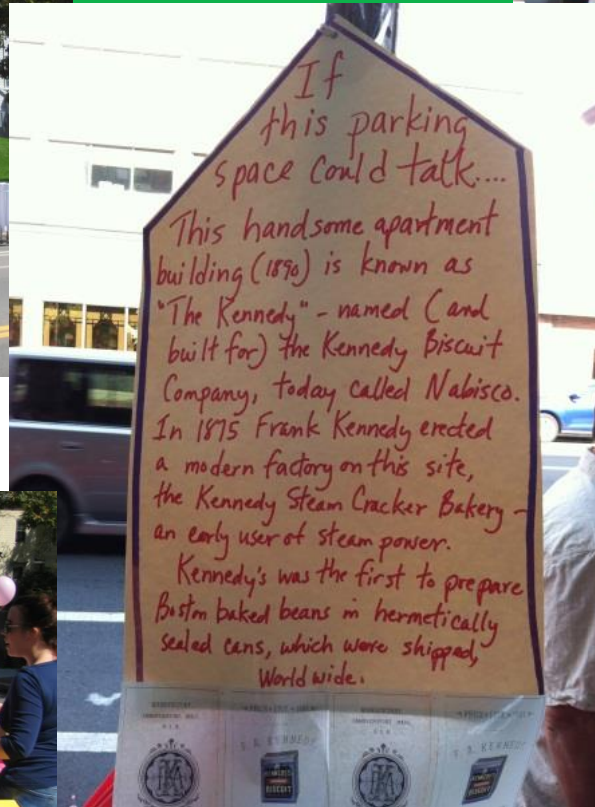 If
this parking
space could talk....
This handsome apartment
building (1890) is known as
"The Kennedy" - named (and
built for) the Kennedy Biscuit
Company, today called Nabisco.
In 1875 Frank Kennedy erected
a modern factory on this site,
the Kennedy Steam Cracker Bakery -
an early user of steam power.
Kennedy's was the first to prepare
Boston baked beans in hermetically
sealed cans, which were shipped,
World wide.
F. A. KENNEDY
F. A. KENNEDY
BISCUIT